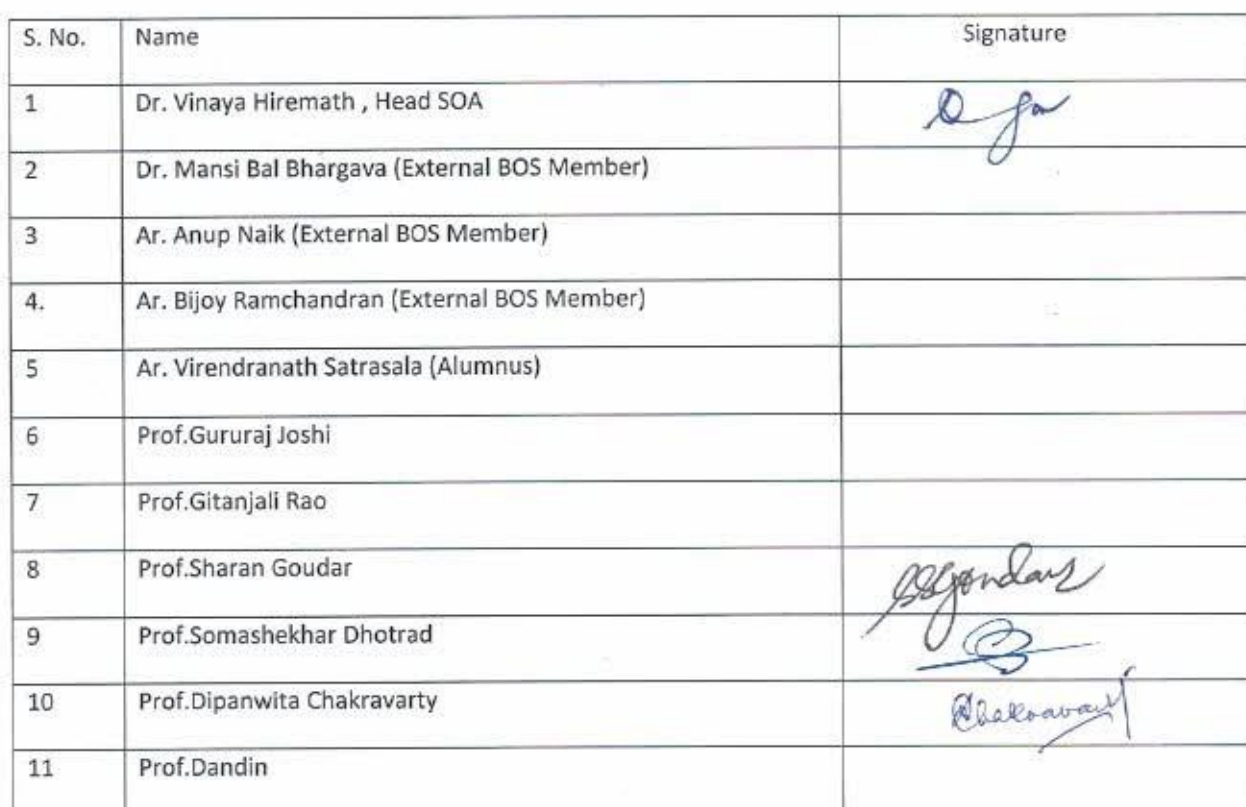 S. No. Name Signature
1 Dr. Vinaya Hiremath , Head SOA
2 Dr. Mansi Bal Bhargava (External BOS Member)
3 Ar. Anup Naik (External BOS Member)
4. Ar. Bijoy Ramchandran (External BOS Member)
5 Ar. Virendranath Satrasala (Alumnus)
6 Prof.Gururaj Joshi
7 Prof.Gitanjali Rao
8 Prof.Sharan Goudar SSGoudar
9 Prof.Somashekhar Dhotrad
10 Prof.Dipanwita Chakravarty
11 Prof.Dandin